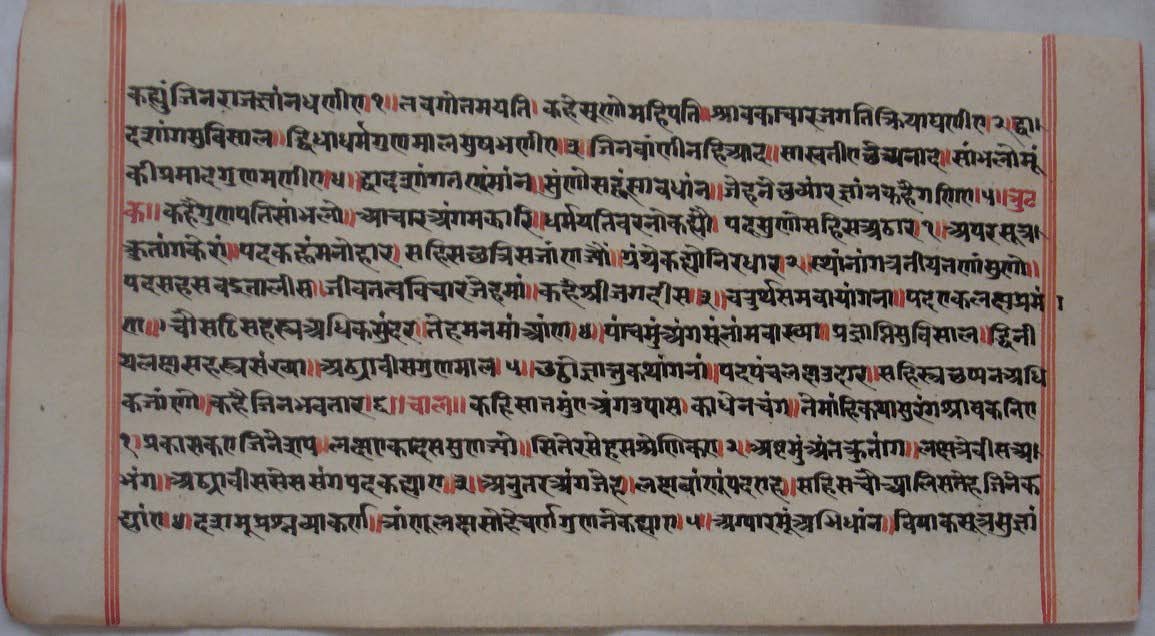 कह्युं जिनराज ज्ञांन धणीए १॥ तव गोतम यति। कहे सुणो महिपति॥ श्रावकाचार जगति क्रियाघणीए २ द्वा।
दशांग सुविसाल॥ द्विधा धर्म गुणमाल सुष भणीए ३ जिनवांणी नहि आद॥ सास्वती ए छे अनाद॥ सांभलो मूं
की प्रमाद गुण मणीए ४॥ द्वादशांग तणुं मांन॥ सुंणो सहुं सावधांन॥ जेहने छ च्यार ज्ञांन कहे गणि ए ५॥ त्रुट
क॥ कहै गुणपति सांभलो॥ आचार अंग मझारि॥ धर्म यतिवरनो कह्यौ पद सुणो सहिस अठार १॥ अपर सूत्रा
कृतांग केरां॥ पद कह्रुं मनोहार। सहिस छत्रिस जांणज्यौ॥ ग्रंथे कह्यो निरधार २॥ स्थांनांग त्रतीय तणां सुणो॥
पद सहस बइतालीस॥ जीवतत्व विचार जेहमां॥ कहै श्री जगदीस ३॥ चतुर्थ समवायांगना॥ पद एक लक्ष प्रमां
ण॥ चौसठि सहस्त्र अधिक सुंदर॥ तेह मनमां आंण ४॥ पांचमुं अंग सुं नांम वाख्या॥ प्रज्ञाप्ति सुविसाल॥ द्विती
य लक्ष सहस्त्र संख्या॥ अठ्यावीस गुणमाल ५॥ छठो ज्ञातृकथांगनां॥ पद पंच लक्ष उदार॥ सहिस्त्र छप्पन अधि
क जांणो॥ कहै जिन भवतार ६॥ चाल॥ कहि सातमुं अंग उपास काधेन चंग॥ ते मांहि कथा सुरंग श्रावक निए
१॥ प्रकासक ए जिनेशष॥ लक्ष एकादस सुणज्यो॥ सितेर सेहस श्रेणिक ए २॥ अष्टमुं अंतकृतांग॥ लक्ष त्रेवीस अ।
भंग॥ अठ्यावीस सेस संग पद कह्याए ३॥ अनुतर अंग जेह। लक्ष बांणुं पद एह॥ सहिस चौआलिस तेह जिने क
ह्यांए ४॥ दशमू प्रश्नव्याकर्ण॥ त्रांणू लक्ष सोहे वर्ण गुणने कह्याए ५॥ अग्यारमूं अभिधांन॥ विपाकसूत्र सुज्ञां